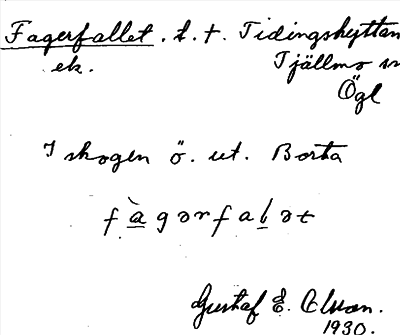 Fagerfallet. t. t. Tidingshyttan
ek. Tjällmo sn
Ögl
I skogen ö. ut. Borta
fàgərfalət
Gustaf E.
1930.